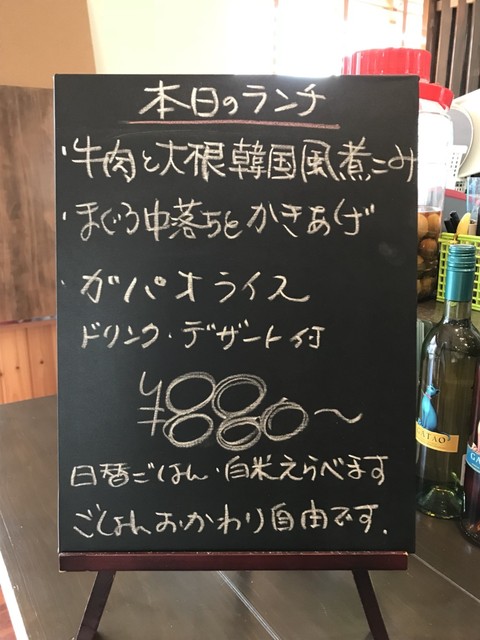 本日のランチ
・牛肉と大根韓国風煮こみ
・まぐろ中落ちとかきあげ
・ガパオライス
ドリンク・デザート付
¥880〜
日替ごはん・白米えらべます
ごはんおかわり自由です.